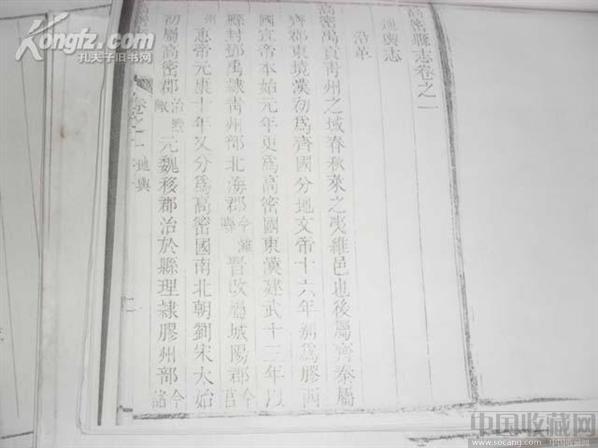 高密縣志卷之一
地輿志
沿革
高密禹貢青州之域春秋萊之夷維邑也後屬齊秦屬
齊郡東境漢初為齊國分地文帝十六年別為膠西
國宣帝本始元年更為高密國東漢建武十三年
縣封鄧禹隸青州部北海郡今濰縣晉改屬城陽郡今莒
州惠帝元康十年又分為高密國南北朝劉宋太始
初屬高密郡治元魏移郡治於縣理隸膠州部今諸
卷之一 地輿 一
Kongfz.com
孔夫子旧书网
中国收藏网
www.socang.com